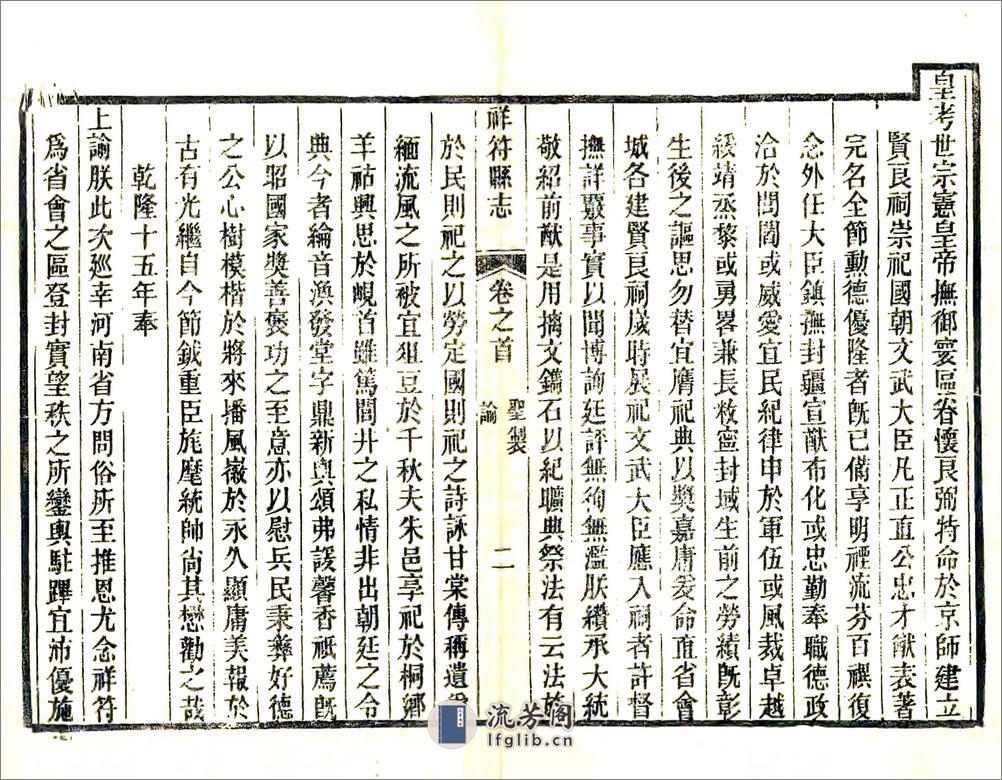 皇考世宗憲皇帝撫御寰區眷懷良弼特命於京師建立
賢良祠崇祀國朝文武大臣凡正直公忠才猷表著
完名全節勳德優隆者旣已僃享明禋流芬百禩復
念外任大臣鎮撫封疆宣猷布化或忠勤奉職德政
洽於閭閻或威愛宜民紀律申於軍伍或風裁卓越
綏靖烝黎或勇畧兼長敉寧封域生前之勞績旣彰
生後之謳思勿替宜膺祀典以奬嘉庸爰命直省會
城各建賢良祠歲時展祀文武大臣應入祠者許督
撫詳覈事實以聞博詢廷評無徇無濫朕纘承大統
敬紹前猷是用摛文鐫石以紀曠典祭法有云法施
祥符縣志
卷之首
聖製
諭
二
於民則祀之以勞定國則祀之詩詠甘棠傳稱遺愛
緬流風之所被宜俎豆於千秋夫朱邑享祀於桐鄉
羊祜興思於峴首雖篤閭井之私情非出朝廷之令
典今者綸音渙發堂宇鼎新輿頌弗諼馨香祇薦旣
以昭國家奬善褒功之至意亦以慰兵民秉彝好德
之公心樹模楷於將來播風徽於永久顯庸美報於
古有光繼自今節鉞重臣旄麾統帥尚其懋勸之哉
乾隆十五年奉
上諭朕此次廵幸河南省方問俗所至推恩尤念祥符
爲省會之區登封實望秩之所鑾輿駐蹕宜沛優施
流芳閣
lfglib.cn